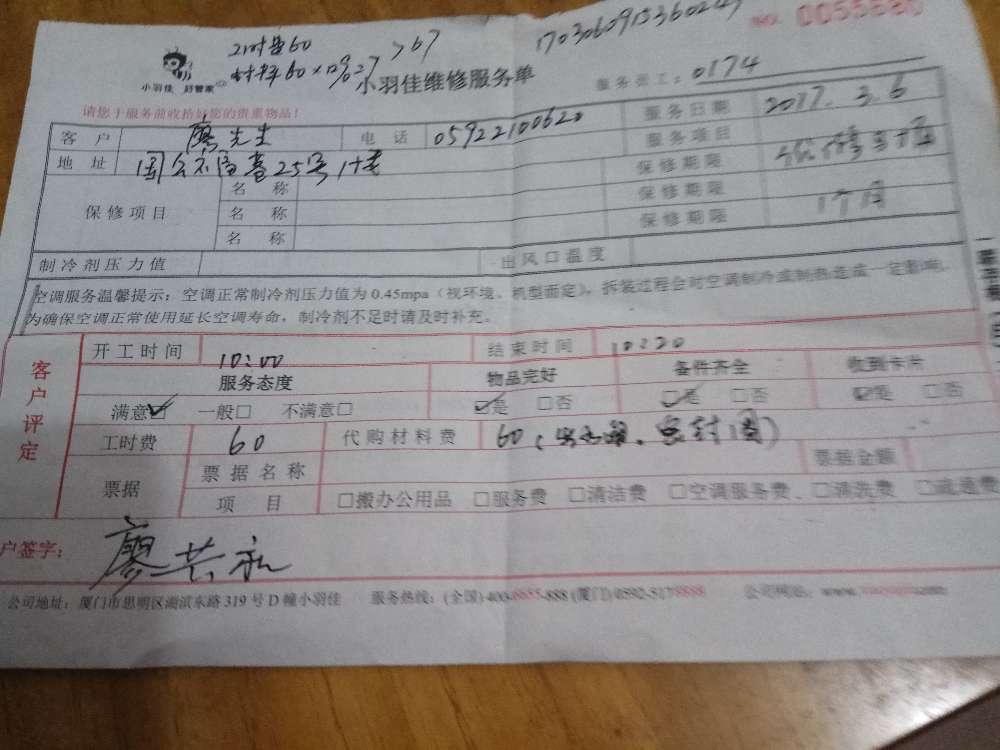 工时费60
材料60×12%=7 >67
小羽佳 好管家
小羽佳维修服务单
服务员工：0174
请您于服务前收拾好您的贵重物品！
客户 廖先生 电话 05922100620 服务日期 2017.3.6
地址 服务项目
保修项目 名称 保修期限
名称 保修期限 1个月
名称 保修期限
制冷剂压力值 出风口温度
空调服务温馨提示：空调正常制冷剂压力值为0.45mpa（视环境、机型而定），拆装过程会对空调制冷或制热造成一定影响，
为确保空调正常使用延长空调寿命，制冷剂不足时请及时补充。
客户评定
开工时间 10:00 结束时间 10:20
服务态度 物品完好 备件齐全 收到卡片
满意☑ 一般□ 不满意□ ☑是 □否 ☑是 □否 ☑是 □否
工时费 60 代购材料费 60（ 、密封圈）
票据 票据名称 票据金额
项目 □搬办公用品 □服务费 □清洁费 □空调服务费 □清洗费 □疏通费
户签字：廖共永
公司地址：厦门市思明区湖滨东路319号D幢小羽佳 服务热线：(全国)400-8885-888 (厦门)0592-5178888 公司网站：www.